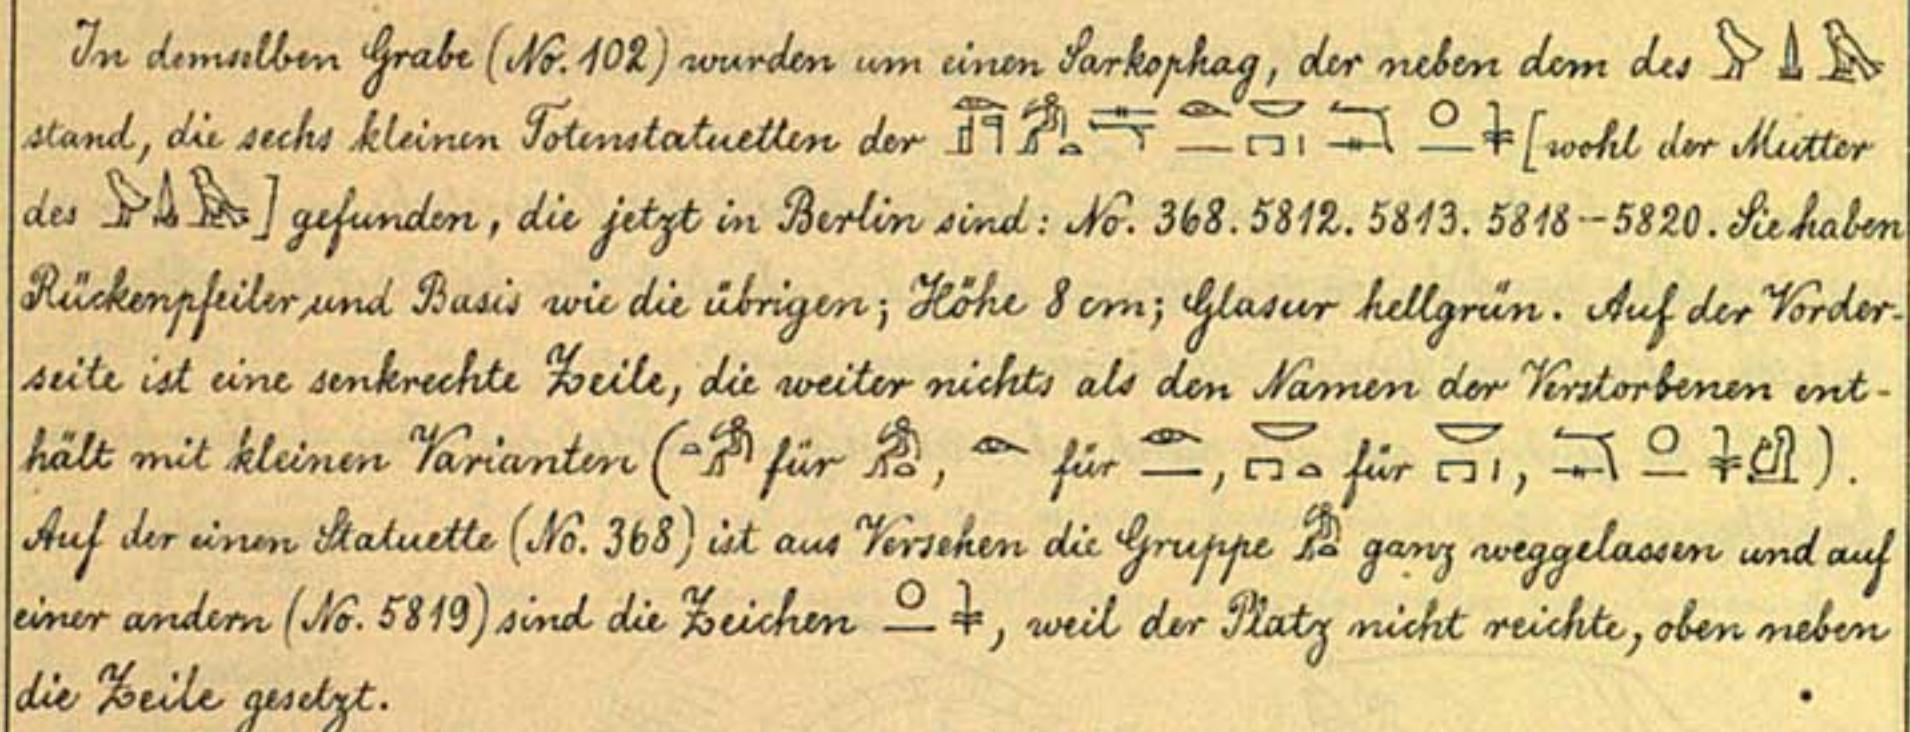 In demselben Grabe (No. 102) wurden um einen Sarkophag, der neben dem des
stand, die sechs kleinen Totenstatuetten der [wohl der Mutter
des ] gefunden, die jetzt in Berlin sind: No. 368. 5812. 5813. 5818–5820. Sie haben
Rückenpfeiler und Basis wie die übrigen; Höhe 8 cm; Glasur hellgrün. Auf der Vorder-
seite ist eine senkrechte Zeile, die weiter nichts als den Namen der Verstorbenen ent-
hält mit kleinen Varianten ( für , für , für , ).
Auf der einen Statuette (No. 368) ist aus Versehen die Gruppe ganz weggelassen und auf
einer andern (No. 5819) sind die Zeichen , weil der Platz nicht reichte, oben neben
die Zeile gesetzt.